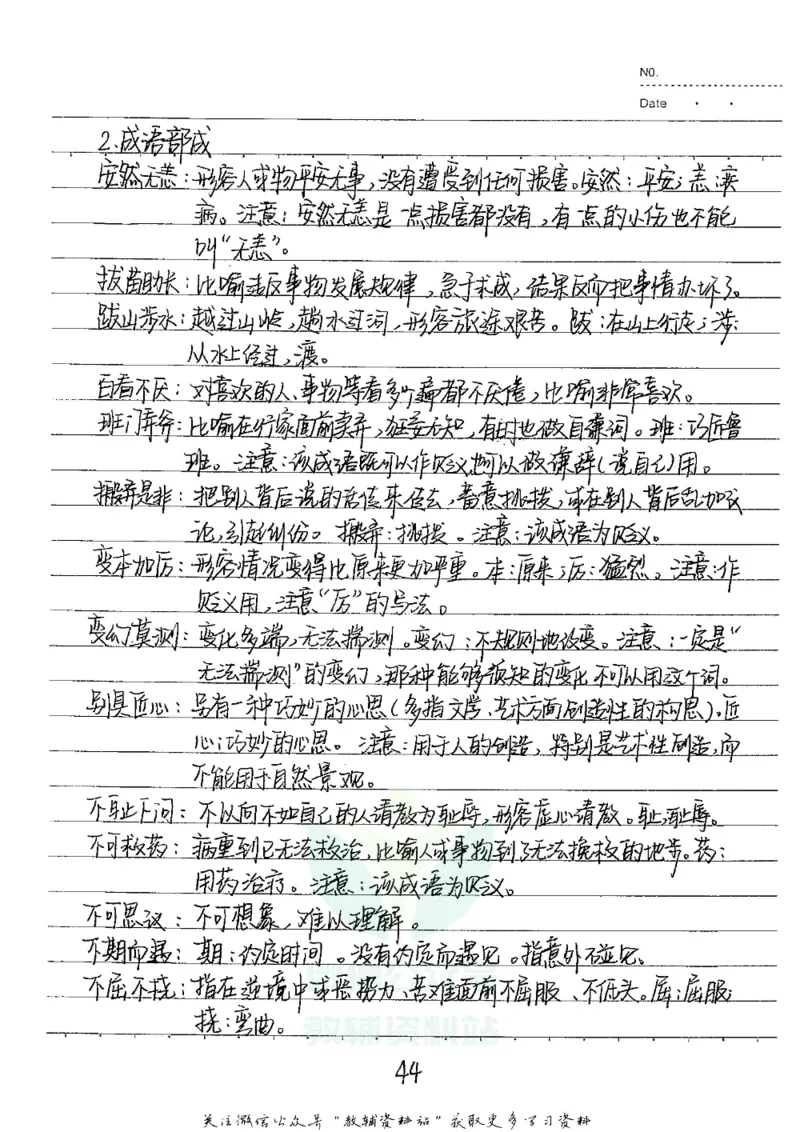 N0.
Date
2、成语部成
安然无恙：形容人或物平安无事，没有遭受到任何损害。安然：平安；恙：疾
病。注意：安然无恙是一点损害都没有，有一点的小伤也不能
叫“无恙”。
拔苗助长：比喻违反事物发展规律，急于求成，结果反而把事情办坏了。
跋山涉水：越过山岭，趟水过河，形容旅途艰苦。跋：在山上行走；涉：
从水上经过，渡。
百看不厌：对喜欢的人、事物等看多少遍都不厌倦，比喻非常喜欢。
班门弄斧：比喻在行家面前卖弄，狂妄无知，有时也做自谦词。班：巧匠鲁
班。注意：该成语既可以作贬义也可以做谦辞（说自己）用。
搬弄是非：把别人背后说的话传来传去，蓄意挑拨，或在别人背后乱加议
论，引起纠纷。搬弄：挑拨。注意：该成语为贬义。
变本加厉：形容情况变得比原来更加严重。本：原来；厉：猛烈。注意：作
贬义用，注意“厉”的写法。
变幻莫测：变化多端，无法揣测。变幻：不规则地改变。注意：一定是“
无法揣测”的变幻，那种能够预知的变化不可以用这个词。
别具匠心：另有一种巧妙的心思（多指文学、艺术方面创造性的构思）。匠
心：巧妙的心思。注意：用于人的创造，特别是艺术性创造，而
不能用于自然景观。
不耻下问：不以向不如自己的人请教为耻辱，形容虚心请教。耻：耻辱。
不可救药：病重到已无法救治，比喻人或事物到了无法挽救的地步。药：
用药治疗。注意：该成语为贬义。
不可思议：不可想象，难以理解。
不期而遇：期：约定时间。没有约定而遇见。指意外碰见。
不屈不挠：指在逆境中或恶势力、苦难面前不屈服、不低头。屈：屈服；
挠：弯曲。
教辅资料站
44
关注微信公众号“教辅资料站”获取更多学习资料